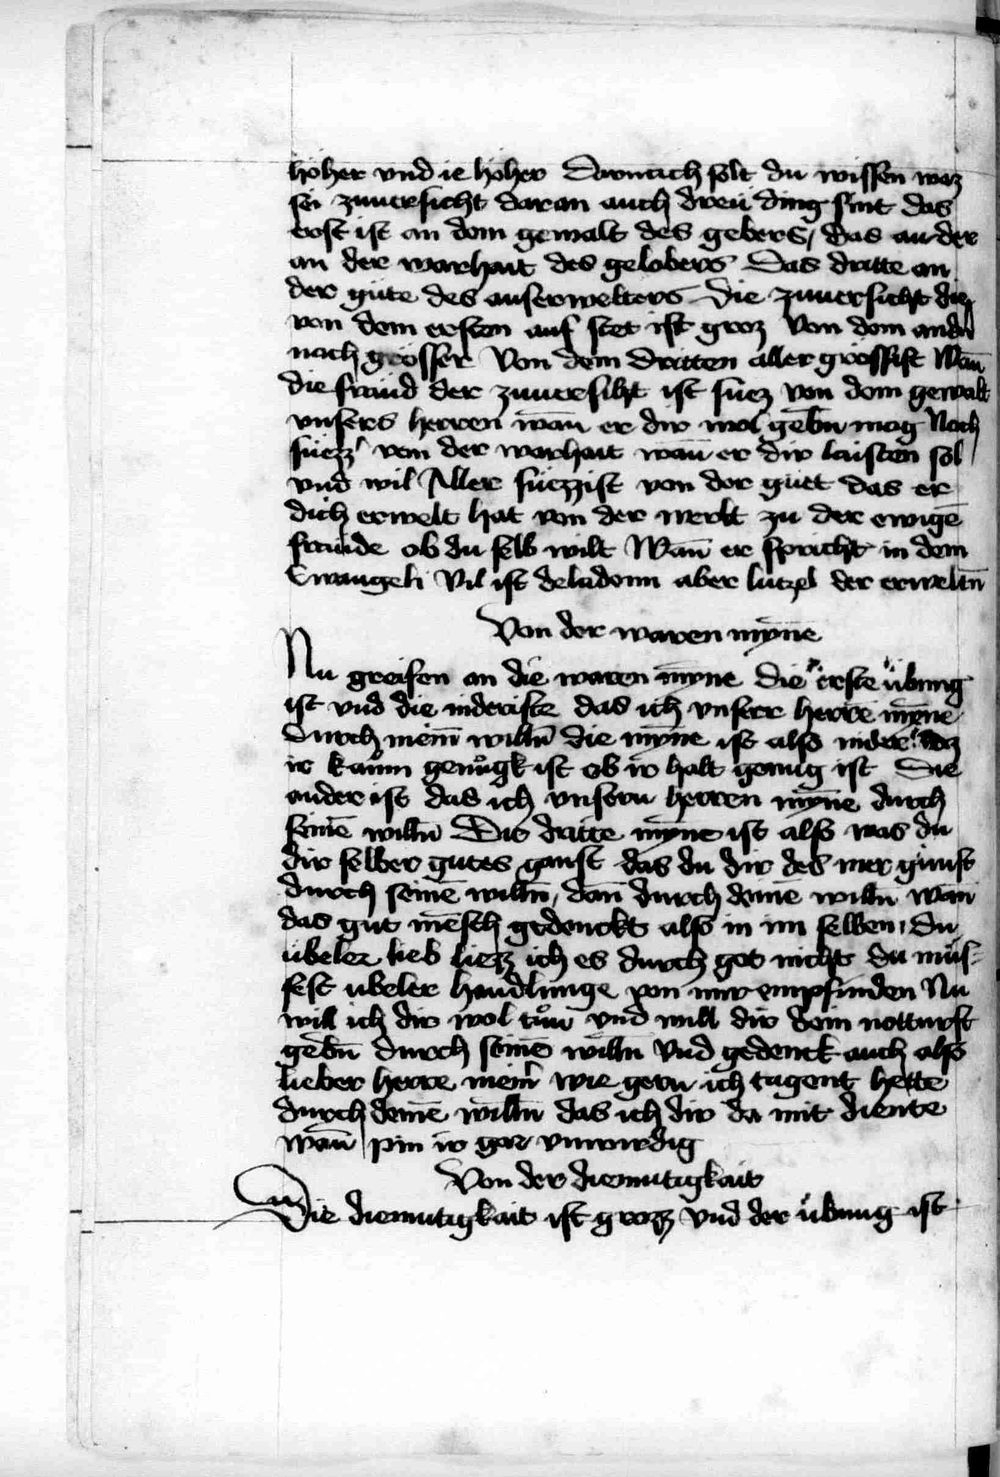 höher vnd ie höher Darnach solt du wissen waz
sei zuuersicht daran auch dreü ding sint das
erst ist an dem gewalt des gebers, das ander
an der warhait des gelobers Das dritte an
der güte des auserwelters Die zuuersicht die
von dem ersten auf stet ist groz Von dem andn̄
noch grösser Von dem dritten aller grössist Wan̄
die fraüd der zuuersiht ist süez von dem gewalt
vnsers herren wan̄ er dir wol gebn̄ mag Noch
süezz' von der warhait wan̄ er dir laisten sol
vnd wil Aller süezzist von der güet das er
dich erwelt hat von der werlt zu der ewigē
fraüde ob du selb wilt Wan̄ er spricht in dem
Ewangeli Vil ist der ladenn aber lützel der erweltn̄
Von der waren mȳne
Nu greifen an die waren mȳne Die erste übung
ist vnd die nideriste das ich vnserr herre mȳne
durch mein̄ willn̄ Die mȳne ist also nider daz
ir kaům genůgk ist ob ir halt genug ist Die
ander ist das ich vnsern herren mȳne durch
seinē willn̄ Die dritte mȳne ist also was du
dir selber gutes ganst das du dir des mer günst
durch seinē willn̄, dan̄ durch deinē willn̄ wan̄
das gut mēsch gedenckt also in im selben, du
übeler leib liezz ich es durch got nicht du müs-
sest übeler handlunge von mir empfinden Nu
will ich dir wol tůn vnd will dir dein notturft
gebn̄ durch seinē willn̄ Vnd gedenck auch also
lieber herre mein̄ wie gern ich tugent hette
durch deinē willn̄ das ich dir da mit diente
wan̄ pin ir gar vnwirdig
Von der diemutigkait
Die diemutigkait ist grozz vnd der übung ist